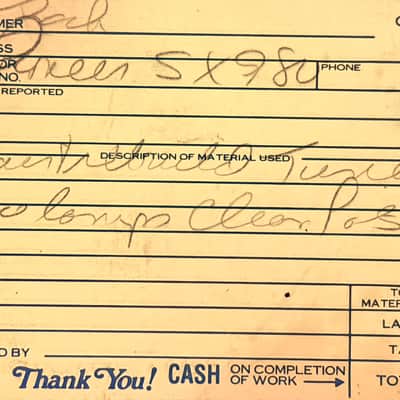 MER
SS
OR
NO.
SX980
PHONE
REPORTED
DESCRIPTION OF MATERIAL USED
rebuild Tune
lamps Clean Pots
TO
MATER
LA
TA
D BY
Thank You! CASH ON COMPLETION OF WORK
TO